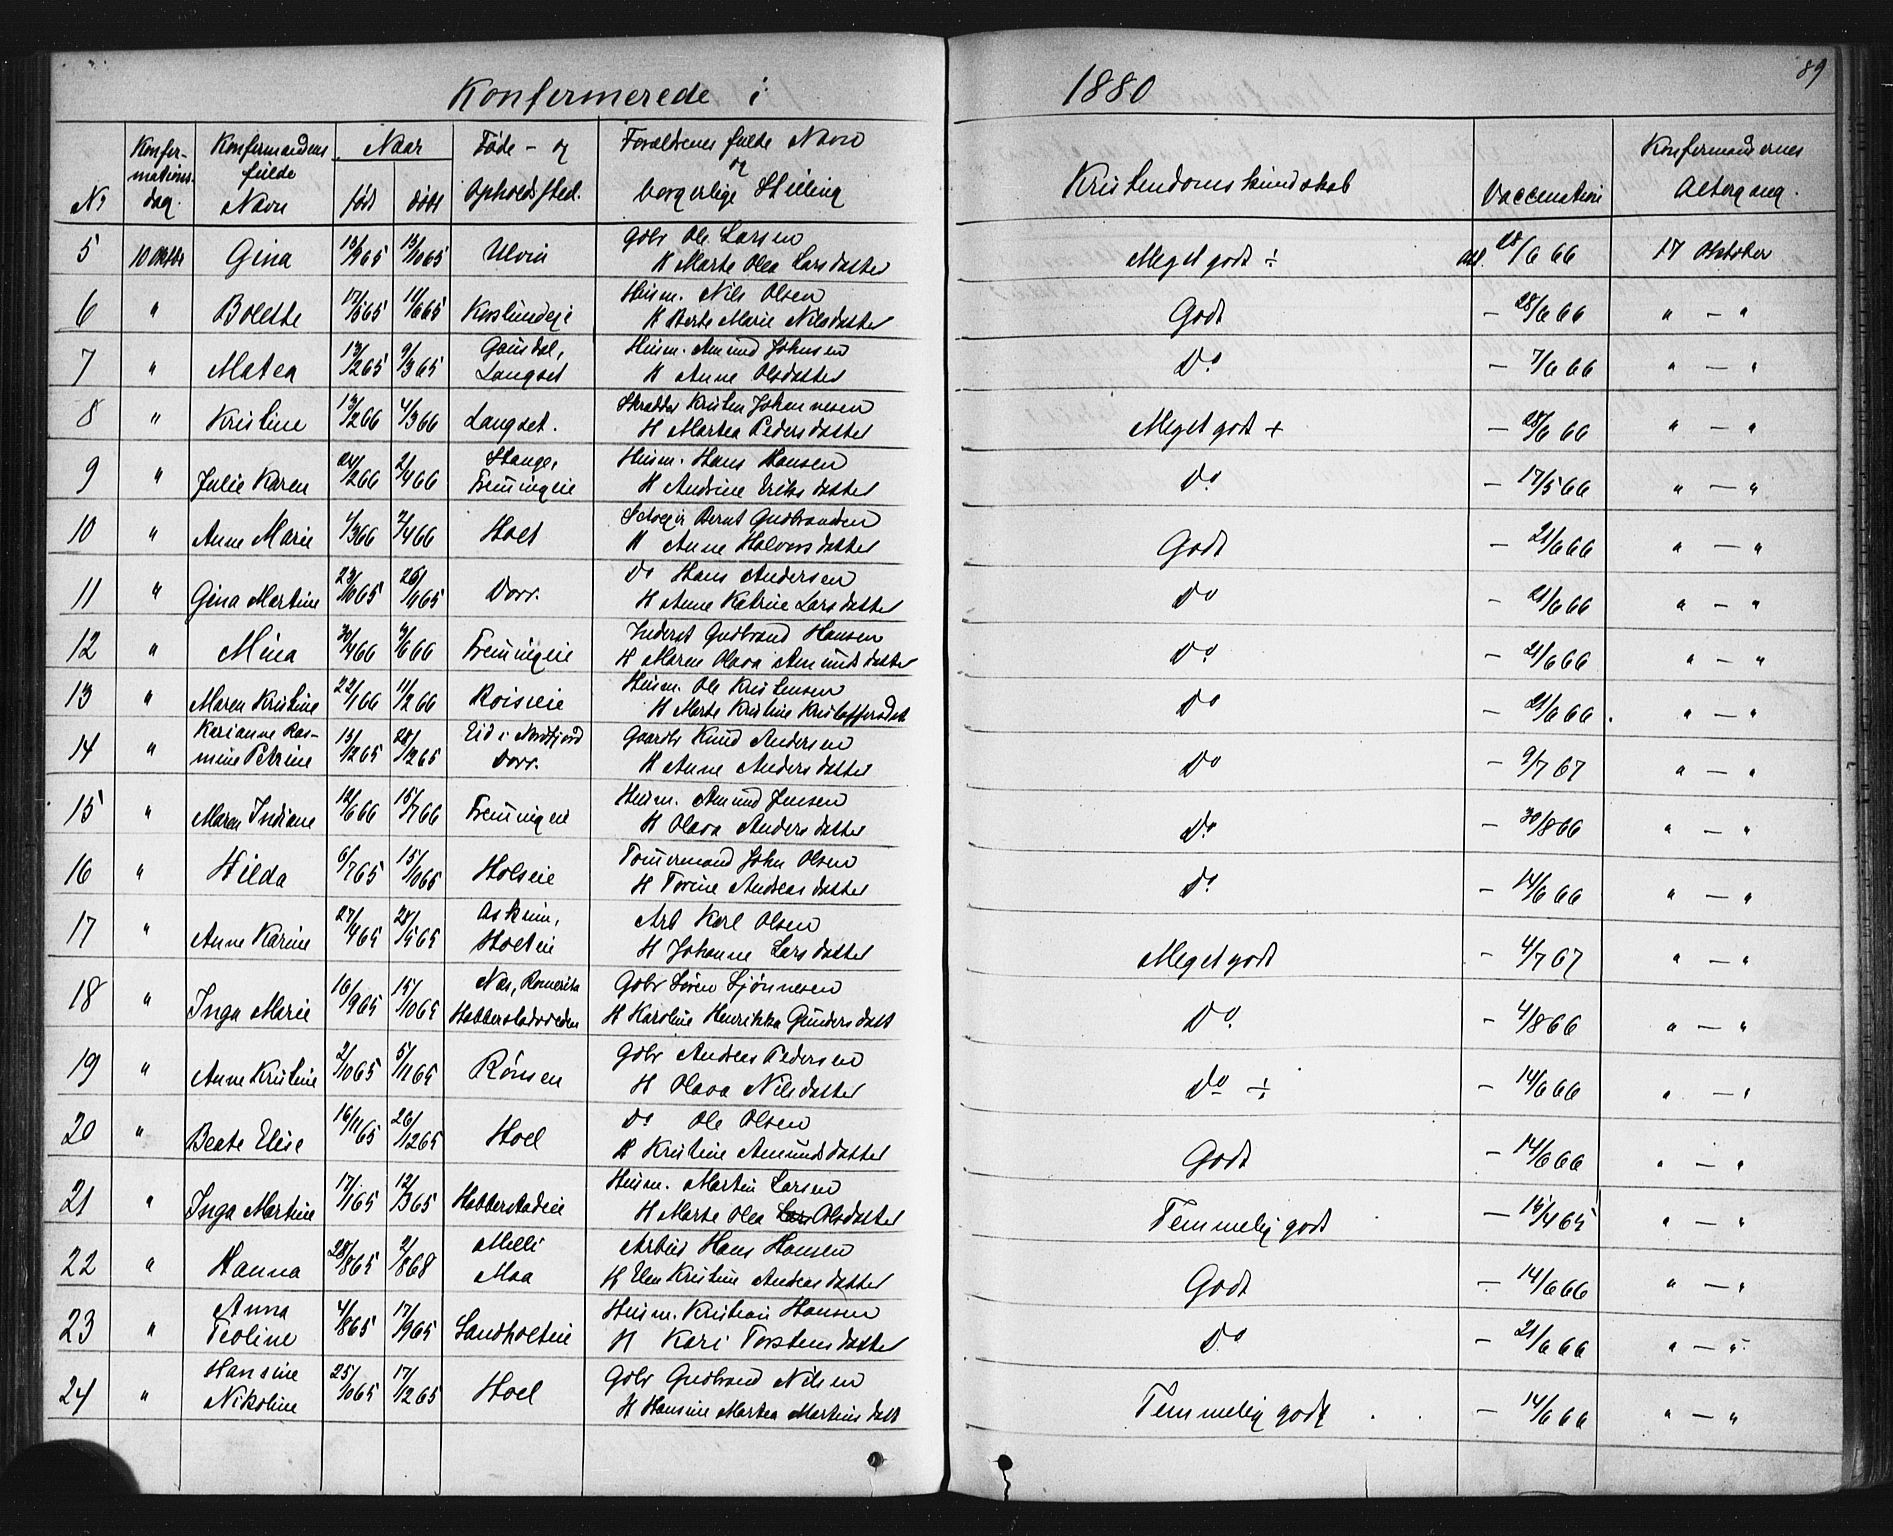 Konfermerede i 1880
89
No
Konfermations dag.
Konfermandens fulde Navn
Naar
født
døbt
Føde- og Opholdssted.
Forældrenes fulde Navn og borgerlige Stilling
Kristendomskundskab
Vaccination
Konfermandernes Altergang.
5 10 Oktbr Gina 13/965 13/1065 Ulvin Gdbr Ole Larsen
H Marte Olea Larsdatter Meget godt ÷ 28/6 66 17 Oktober
6 " Bolette 11/665 Husm. Nils Olsen
H Berte Marie Nilsdatter Godt – 28/6 66 " – "
7 " Matea 13/265 9/365 Gausdal, Langset Husm. Amund Johnsen
H Anne Olsdatter Do – 7/6 66 " – "
8 " Kristine 13/266 4/366 Langset. Skrædder Kristen Johannesen
H Martea Pedersdatter Meget godt + – 28/6 66 " – "
9 " Julie Karen 24/266 2/466 Stange, Fremingeie Husm. Hans Hansen
H Andrine Eriksdatter Do – 17/5 66 " – "
10 " Anne Marie 1/366 2/466 Holt Bernt Gudbrandsen
H Anne Halvorsdatter Godt – 21/6 66 " – "
11 " Gina Martine 23/1065 26/1165 Dorr. Do Hans Andersen
H Anne Katrine Larsdatter Do – 21/6 66 " – "
12 " Mina 30/466 3/666 Fremingeie Inderst Gudbrand Hansen
H Maren Olava Amundsdatter Do – 21/6 66 " – "
13 " Maren Kristine 22/166 11/266 Roiseie Husm. Ole Kristensen
H Marte Kristine Kristoffersdat Do – 21/6 66. " – "
14 " Karianne Rasmine Petrine 13/1265 28/1265 Eid i Nordfjord Dorr. Gaardbr Knud Andersen
H Anne Andersdatter Do – 9/7 67 " – "
15 " Maren Indiane 12/666 15/766 Fremingeie Husm. Amund Jensen
H Olava Andersdatter Do – 30/8 66 " – "
16 " Hilda 6/765 15/1065 Holseie Tømermand John Olsen
H Torine Andreasdatter Do – 14/6 66 " – "
17 " Anne Karine 27/465 28/565 Askeim, Holteie Arb Karl Olsen
H Johanne Larsdatter Meget godt – 4/7 67 " – "
18 " Inga Marie 16/965 15/1065 Næs, Romerike Habberstadvedem Gdbr Søren Sjønnesen
H Karoline Henrikka Gundersdatt Do – 4/8 66 " – "
19 " Anne Kristine 2/1065 5/1165 Rønsen Gdbr Andreas Pedersen
H Olava Nilsdatter Do ÷ – 14/6 66 " – "
20 " Beate Elise 16/1165 26/1265 Hoel Do Ole Olsen
H Kristine Amundsdatter Godt – 14/6 66 " – "
21 " Inga Martine 17/165 12/365 Habberstadeie Husm. Martin Larsen
H Marte Olea Lars Olsdatter Temmelig godt – 15/4 65 " – "
22 " Hanna 28/865 2/868 Melli Moa Arbeid Hans Hansen
H Elen Kristine Andreasdatter Godt – 14/6 66 " – "
23 " Anna Teoline 4/865 17/965 Sandholteie Husm. Kristian Hansen
H Kari Torstensdatter Do – 21/6 66 " – "
24 " Hansine Nikoline 25/1065 17/1265 Hoel Gdbr Gudbrand Nilsen
H Hansine Martea Martinsdatt Temmelig godt – 14/6 66 " – "